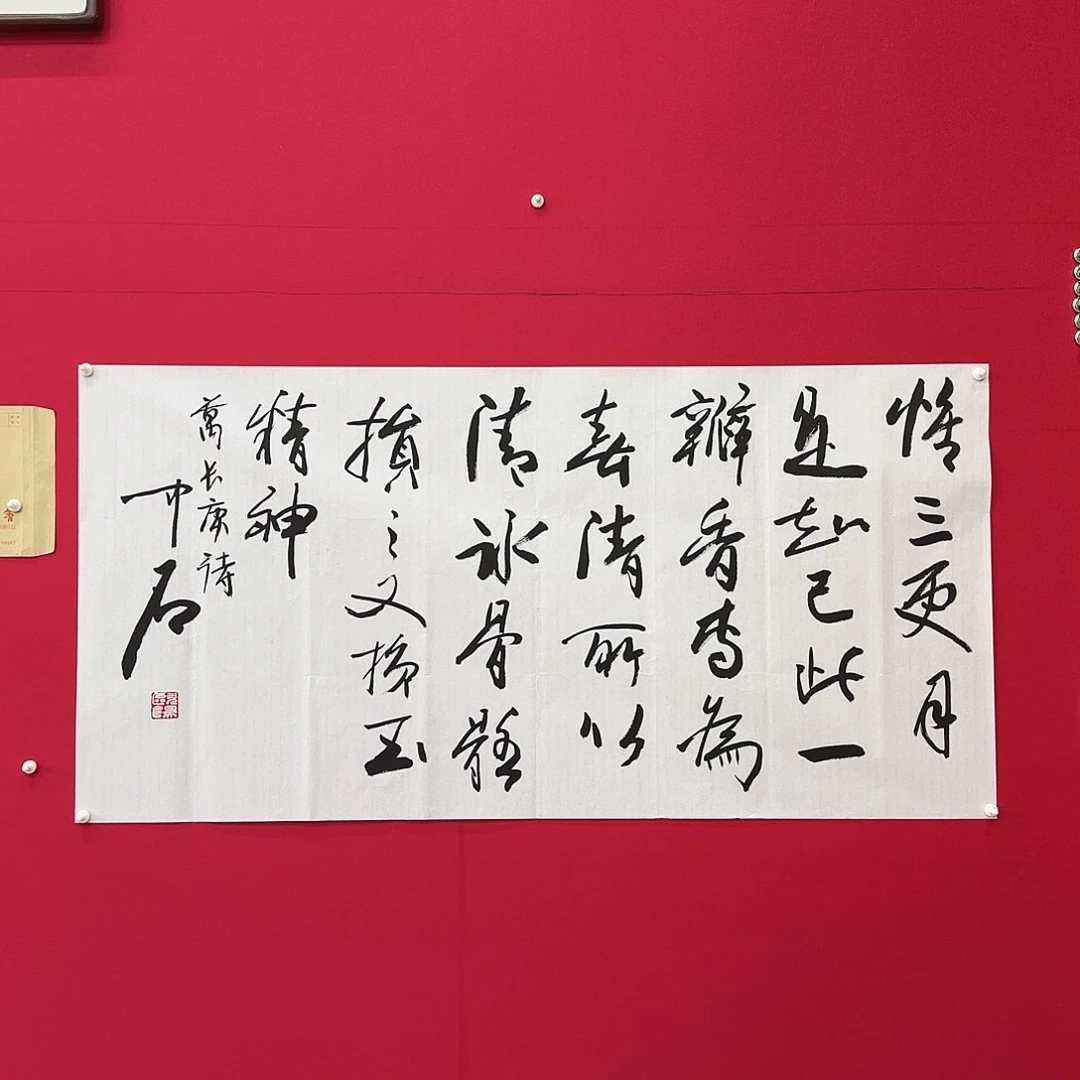 惟三更月
是知己此一
瓣香专為
春清所以
清冰骨骼
損之又损玉
精神
葛长庚诗
中石